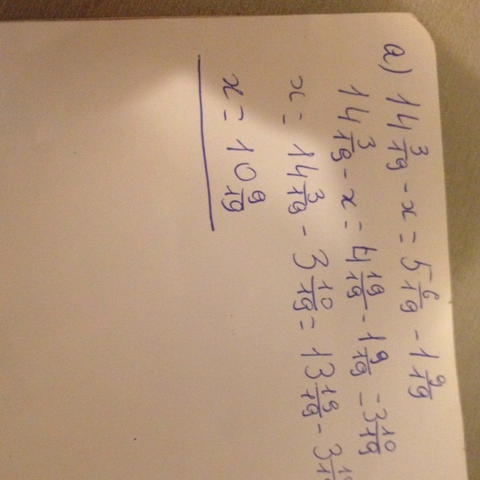 а) 14 3/19 - x = 5 6/19 - 1 9/19
14 3/19 - x = 4 19/19 - 1 9/19 = 3 10/19
x = 14 3/19 - 3 10/19 = 13 19/19 - 3
x = 10 9/19